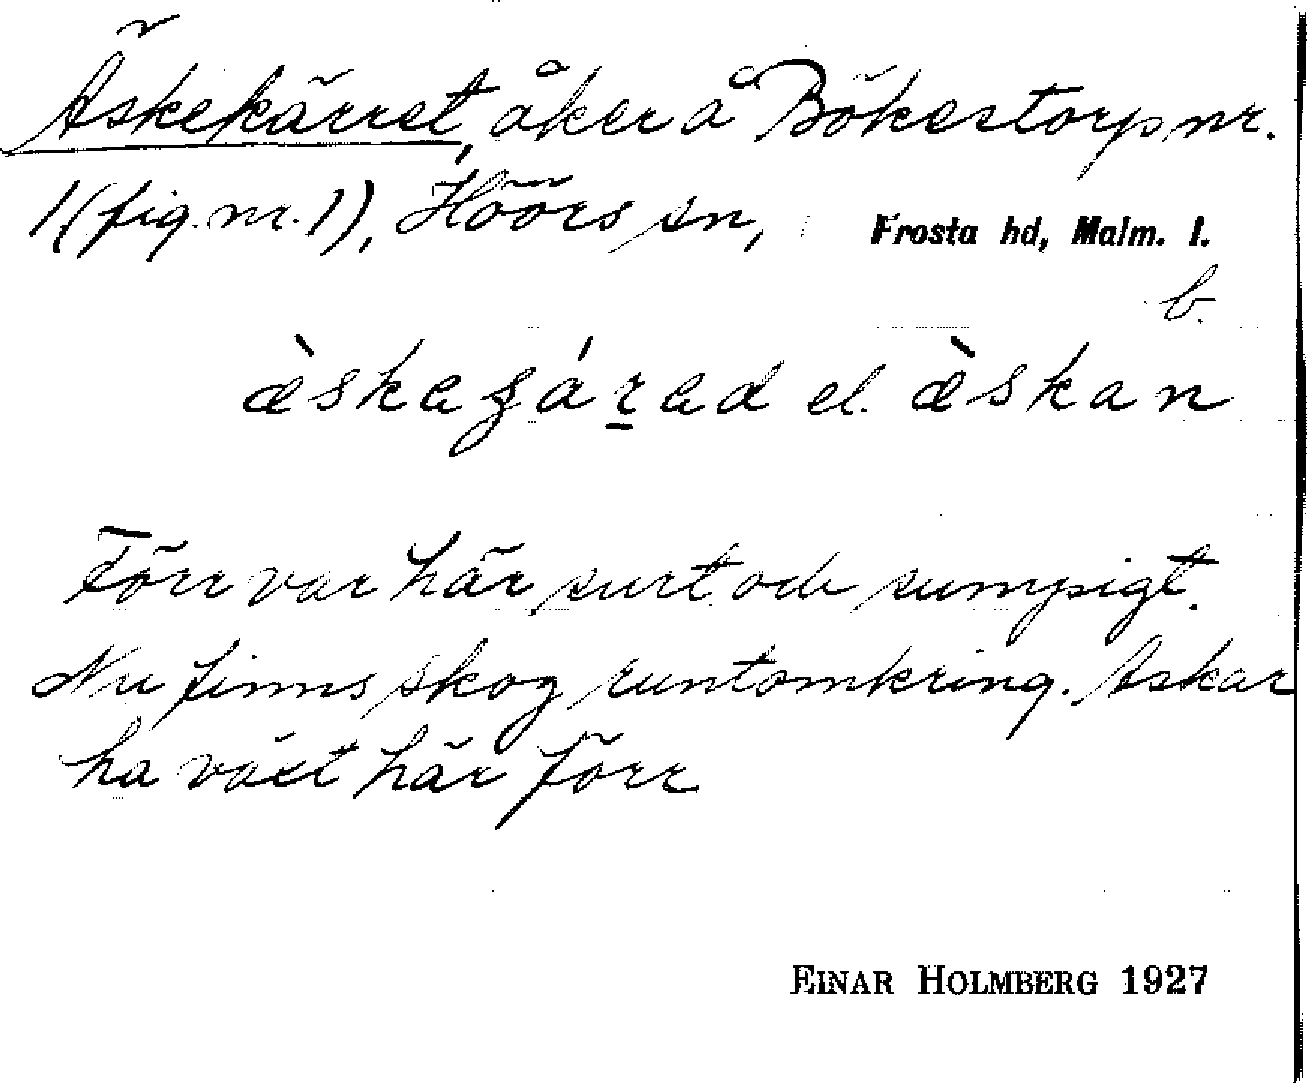 Äskekärret, åker å Bökestorp nr.
1 (fig. nr. 1), Höörs sn, Frosta hd, Malm. l.
b.
el. æ̀skan
Förr var här surt och sumpigt.
Nu finns skog runtomkring. Askar
ha växt här förr
EINAR HOLMBERG 1927